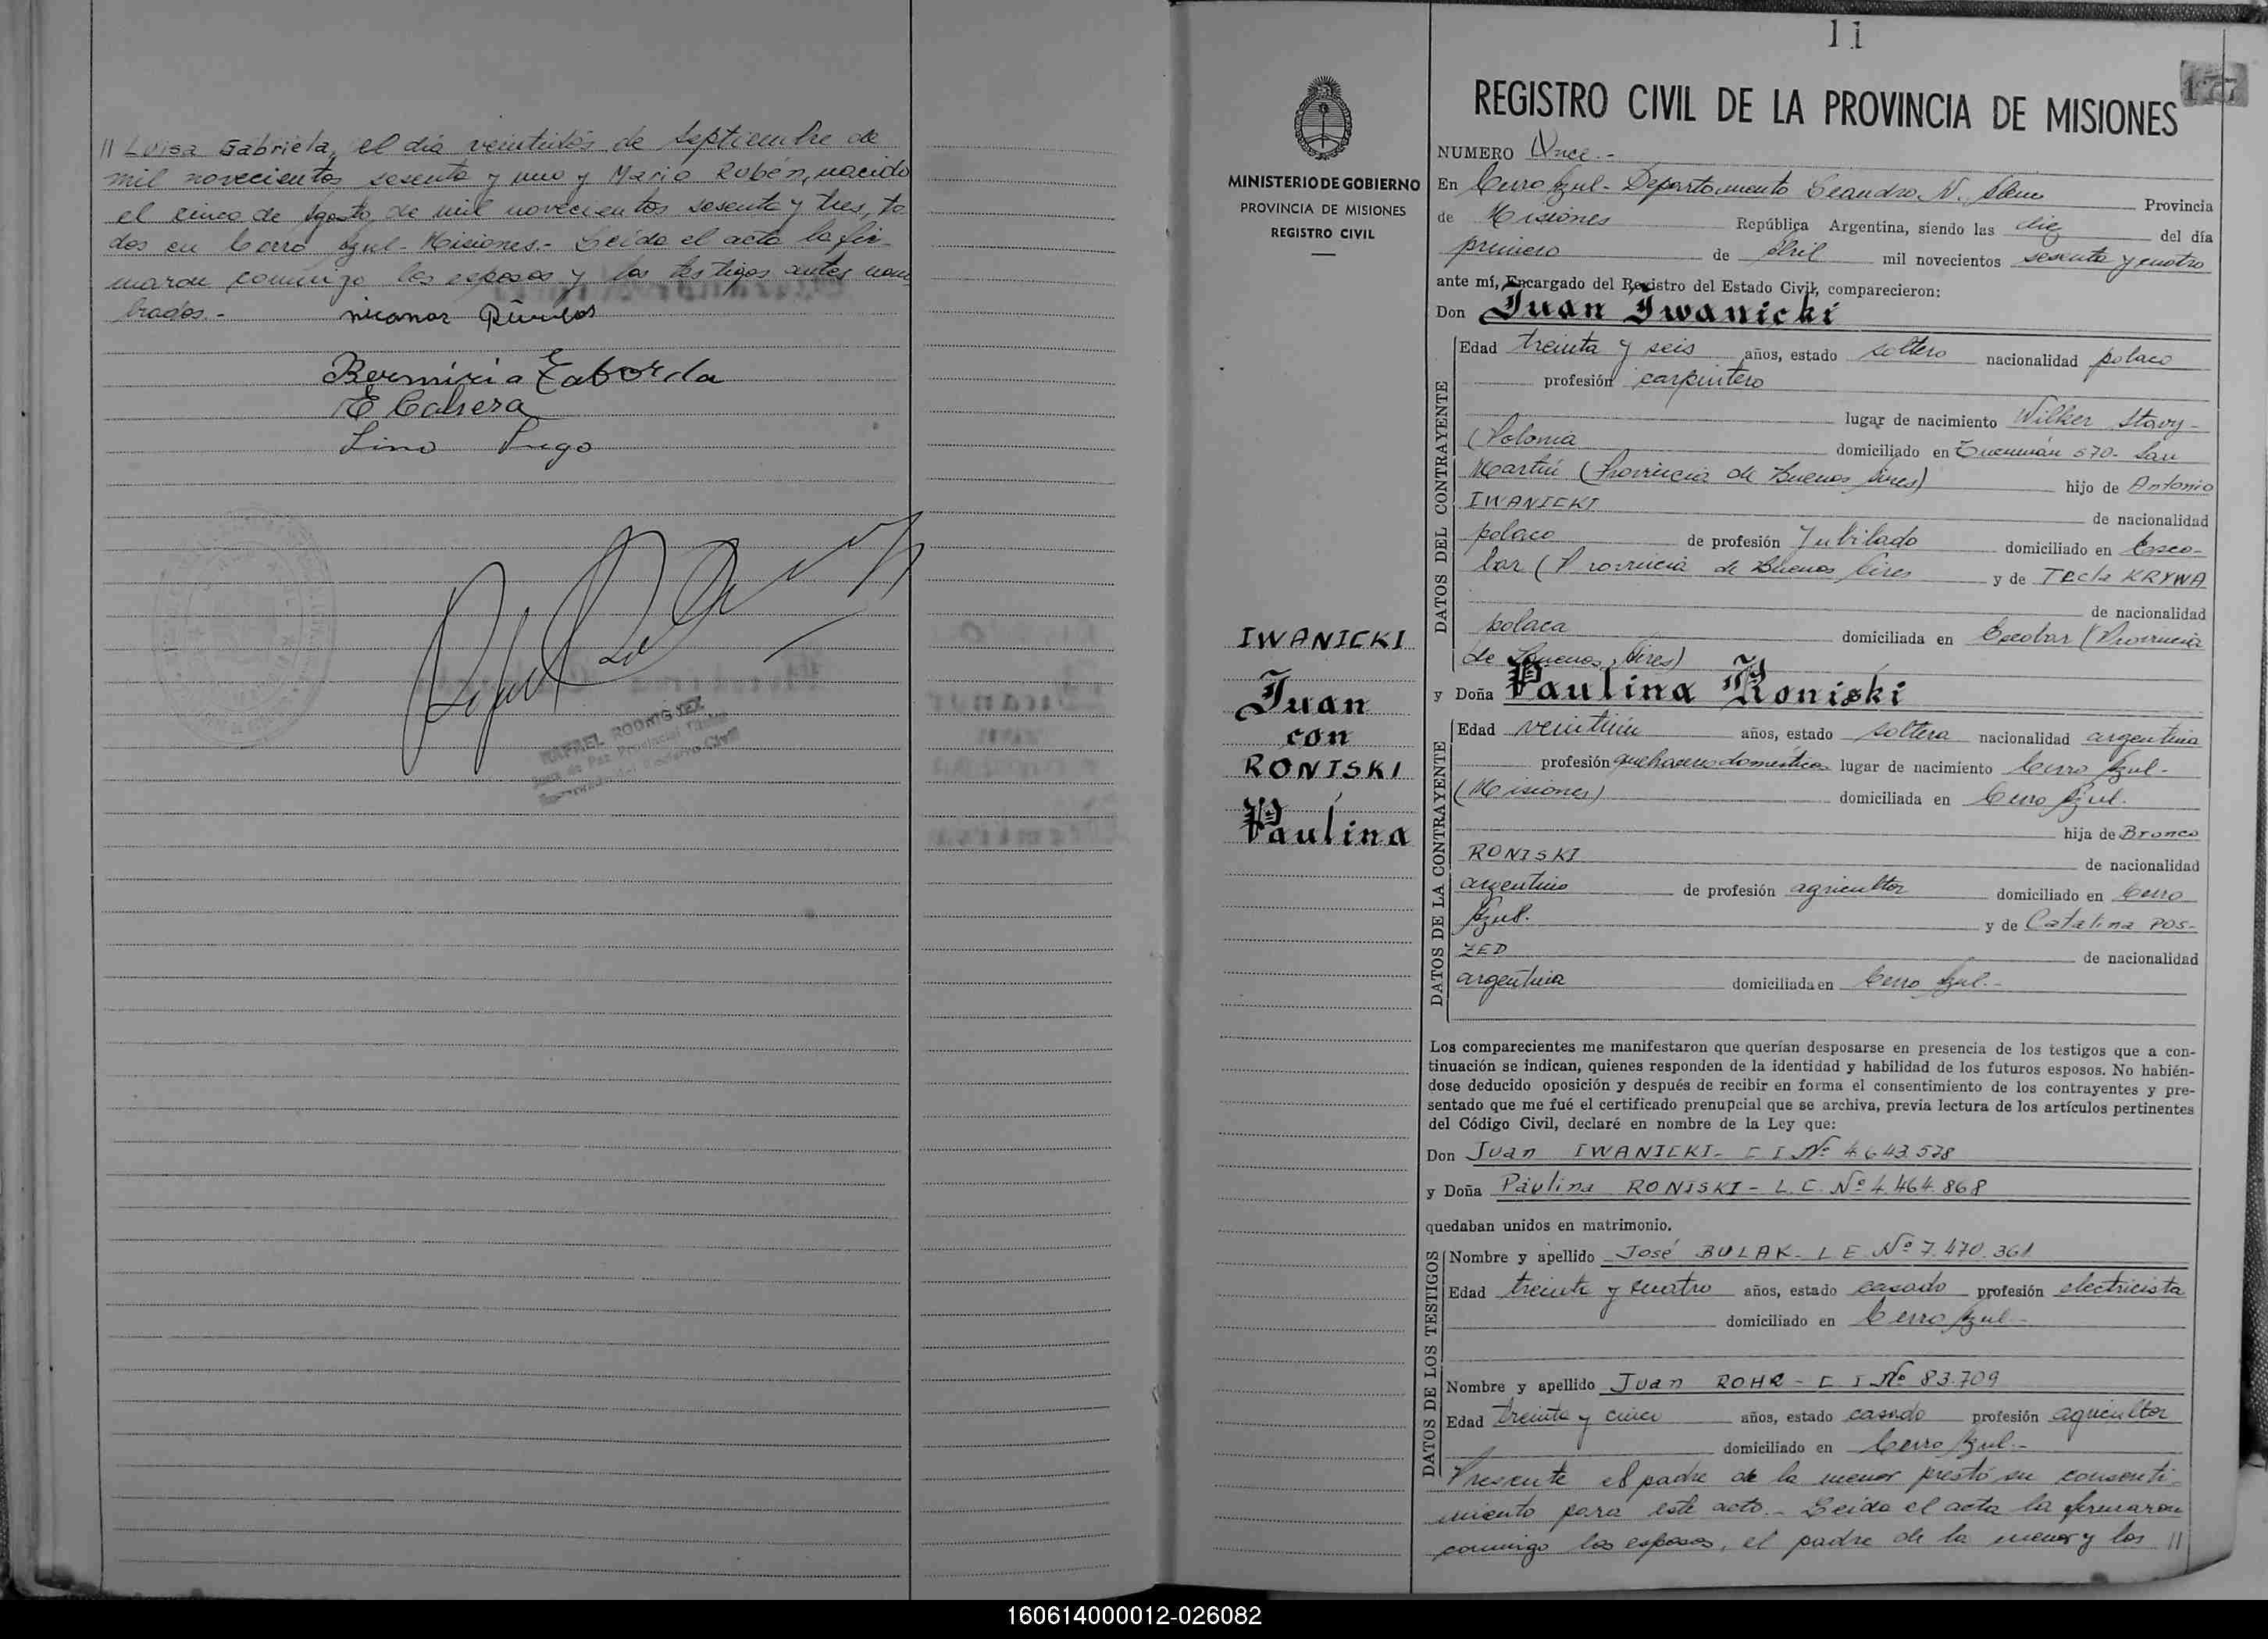 // Luisa Gabriela, el día veintidós de septiembre de
mil novecientos sesenta y uno y Mario Rubén, nacido
el cinco de Agosto de mil novecientos sesenta y tres, to
dos en Cerro Azul - Misiones.- Leída el acta la fir-
maron conmigo los esposos y los testigos antes nom
brados.-
Taborda
E Cabrera
Lino
RAFAEL RODRIGUEZ
Juez de Paz Provincial
11
177
REGISTRO CIVIL DE LA PROVINCIA DE MISIONES
MINISTERIO DE GOBIERNO
PROVINCIA DE MISIONES
REGISTRO CIVIL
IWANICKI
Juan
con
RONISKI
Paulina
NUMERO Once.-
En Cerro Azul - Departamento Leandro N. Alem Provincia
de Misiones República Argentina, siendo las diez del día
primero de Abril mil novecientos sesenta y cuatro
ante mí, Encargado del Registro del Estado Civil, comparecieron:
Don Juan Iwanicki
DATOS DEL CONTRAYENTE
Edad treinta y seis años, estado soltero nacionalidad polaco
profesión carpintero
lugar de nacimiento Wilker Stavy-
(Polonia domiciliado en Tucumán 570- San
Martín (Provincia de Buenos Aires) hijo de Antonio
IWANICKI de nacionalidad
polaco de profesión Jubilado domiciliado en Esco-
bar (Provincia de Buenos Aires y de Tecla KRYWA
de nacionalidad
polaca domiciliada en Escobar (Provincia
de Buenos Aires)
y Doña Paulina Roniski
DATOS DE LA CONTRAYENTE
Edad veintiún años, estado soltera nacionalidad argentina
profesión quehaceres domésticos lugar de nacimiento Cerro Azul-
(Misiones) domiciliada en Cerro Azul.
hija de Bronco
RONISKI de nacionalidad
argentino de profesión agricultor domiciliado en Cerro
Azul. y de Catalina POS-
ZED de nacionalidad
argentina domiciliada en Cerro Azul.-
Los comparecientes me manifestaron que querían desposarse en presencia de los testigos que a con-
tinuación se indican, quienes responden de la identidad y habilidad de los futuros esposos. No habién-
dose deducido oposición y después de recibir en forma el consentimiento de los contrayentes y pre-
sentado que me fué el certificado prenupcial que se archiva, previa lectura de los artículos pertinentes
del Código Civil, declaré en nombre de la Ley que:
Don Juan IWANICKI- C I Nº 4.643.578
y Doña Paulina RONISKI - L.C. Nº 4.464.868
quedaban unidos en matrimonio.
DATOS DE LOS TESTIGOS
Nombre y apellido José BULAK- L E Nº 7.470.361
Edad treinta y cuatro años, estado casado profesión electricista
domiciliado en Cerro Azul-
Nombre y apellido Juan ROHR - C I Nº 83.709
Edad treinta y cinco años, estado casado profesión agricultor
domiciliado en Cerro Azul.-
Presente el padre de la menor prestó su consenti-
miento para este acto.- Leída el acta la firmaron
conmigo los esposos, el padre de la menor y los //
160614000012-026082